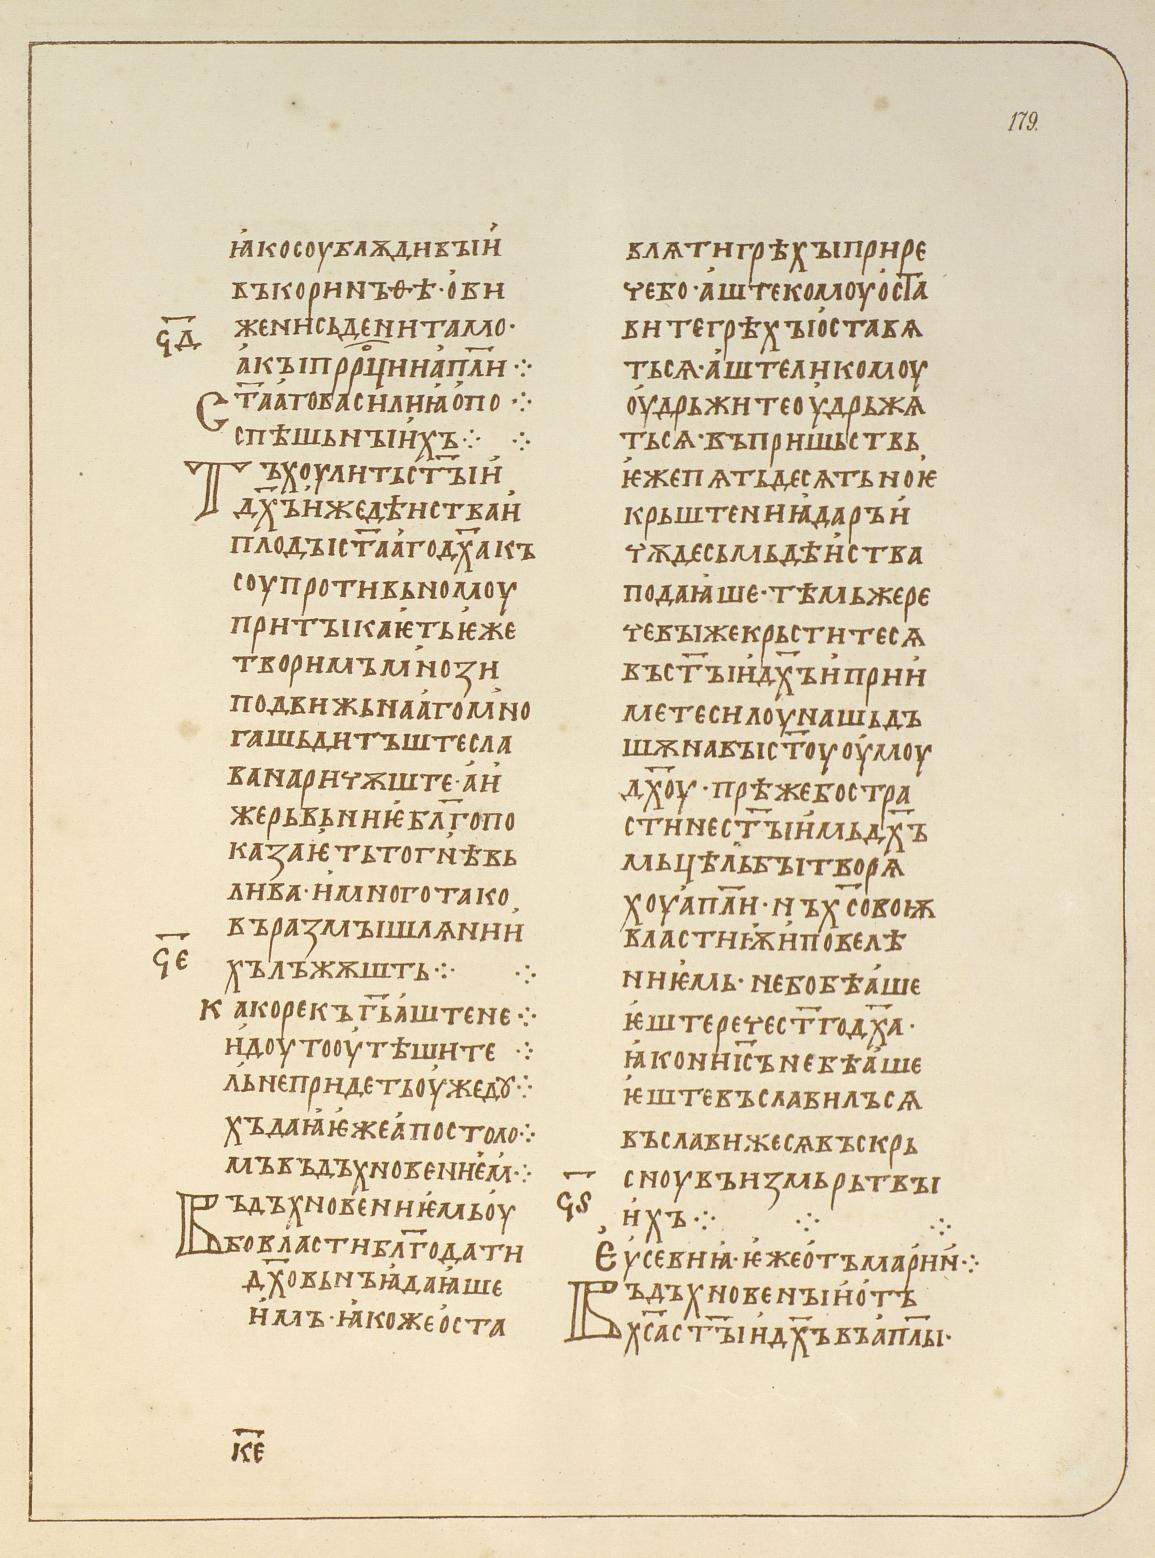 179.
ꙗ҆косоублѫдивъıи҆
въкоринъѳѣ·о҆би
ч҃д
жениісьденитамо·
а҆къıпррⷪ҇циина҆пл҃и ⁘
Ст҃ааговаси҆лиꙗ҆о҆по ⁘
спѣшьнъıи҆хъ⁘ ⁘
Тъхоулитьст҃ъıи҆
дх҃ъи҆жедѣистваи҆
плодъıст҃аа҆годх҃акъ
соупротивьномоу
притъıкаѥ҆тьѥ҆же
творимъм҆нози
подвижьнаа҆гом҆но
гашьдитъштесла
ванаричѫште·а҆и҆
жерьвьниѥ҆бл҃гопо
казаѥ҆тьтогн҆ѣвь
лива·и҆многотако
въразмъıшлꙗнии҆
ч҃є
хълъжѫшть⁘ ⁘
какорекъг҃ьа҆штене⁘
и҆доутооу҆тѣшите ⁘
л҆ьнепридетьоу҆жедꙋ⁘
хъдаꙗ҆ѥ҆жеа҆постоло⁘
мъвъдъхновение҆м⁘
Въдъхновениѥ҆мьоу҆
бовластибл҃годати
дх҃овьнъıꙗ҆даꙗ҆ше
и҆мъ·ꙗ҆коже о҆ста
к҃є
влѧтигрѣхъıприре
чебо·а҆штекомоуо҆ста
витегрѣхъıо҆ставѧ
тьсѧ·а҆штеликомоу
оу҆дрьжитеоу҆дрьжѧ
тьсѧ·въпришьствь
ѥ҆жепѧтьдесѧтьноѥ
крьштениꙗ҆даръи҆
чѫдесьмьдѣи҆ства
подаꙗ҆ше·тѣмьжере
чевъıжекрьститесѧ
въст҃ъıи҆дх҃ъи҆прии҆
метесилоу҆нашьдъ
шѫнавъıст҃оуоу҆моу
дх҃оу·прѣжебостра
стинест҃ъıи҆мьдх҃ъ
мьцѣльбъıтворѧ
хоуа҆пл҃и·нъх҃совоѭ
властиѭ҆и҆повелѣ
ниѥ҆мь·небобѣа҆ше
ѥ҆штеречест҃годх҃а·
ꙗ҆кониі҃съне бѣа҆ше
ѥ҆штевъславилъсѧ
въславижесѧвъскрь
сноувъизмьрьтвъı
ч҃ѕ
и҆хъ⁘ ⁘ ⁘
Е҆у҆севиꙗ҆·ѥ҆жео҆тъмарии҆⁘
Въдъхновенъıи҆о҆тъ
х҃саст҃ъıи҆дх҃ъвъа҆пл҃ы·